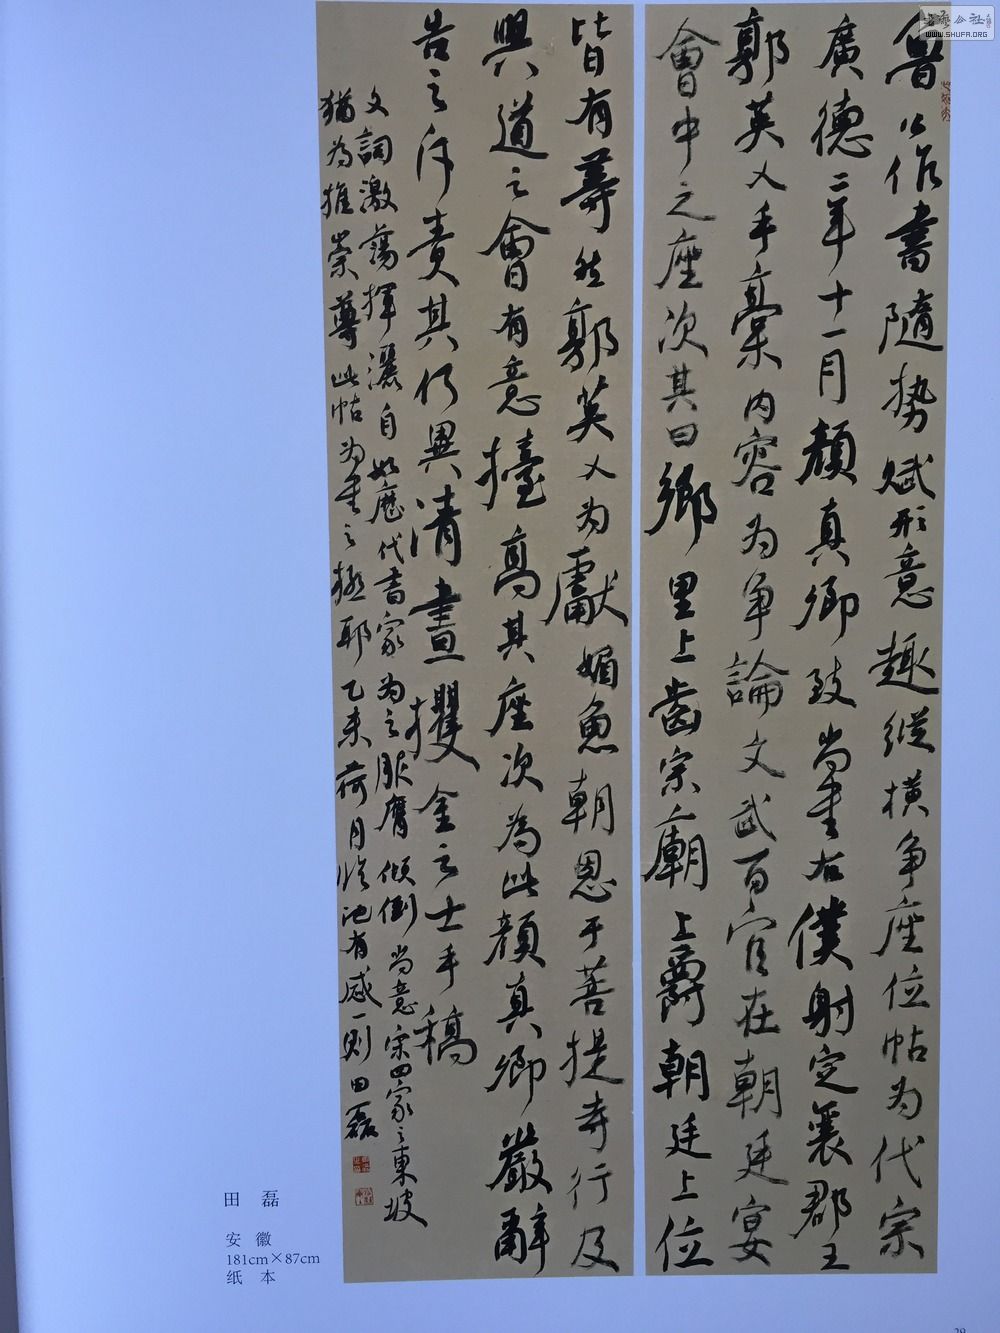 魯公作書隨勢賦形意趣縱橫争座位帖为代宗
廣德二年十一月顏真卿致尚書右僕射定襄郡王
郭英乂手稾内容为争論文武百官在朝廷宴
會中之座次其曰鄉里上齒宗廟上爵朝廷上位
皆有等然郭英乂为獻媚魚朝恩于菩提寺行及
興道之會有意擡高其座次為此顏真卿嚴辭
告之斥責其行異清晝攫金之士手稿
文詞激蕩揮灑自如歷代書家为之服膺傾倒尚意宋四家之東坡
猶为推崇尊此帖为書之極耶乙未荷月臨池有感一則田磊
田 磊
安 徽
181cm×87cm
纸 本
29
书法公社
WWW.SHUFA.ORG